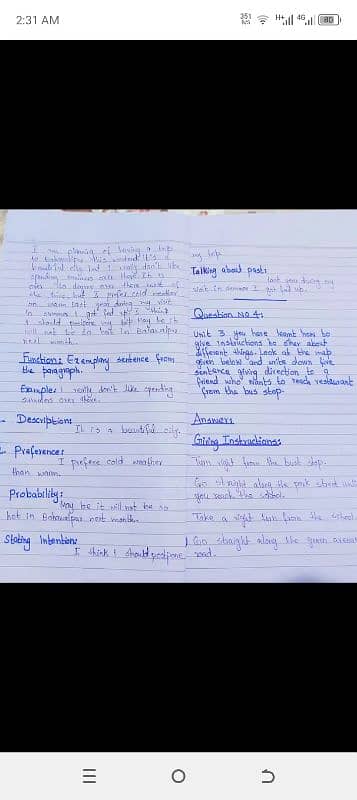 2:31 AM
351
4G
80
I am planing of having a trip
to Bahawalpur this weekend. It's a
beautiful city but I really don't like
spending summers over there. It is
over degree over there most of
the time but I prefer cold weather
on warm last year during my visit
in summer I got fed up. I think
I should postpone my trip. May be it
will not be so hot in Bahawalpur
next month.
Functions: Exemplary sentence from
the paragraph.
Example: I really don't like spending
summers over there.
Description:
It is a beautiful city.
Preference:
I prefere cold weather
than warm.
Probability:
May be it will not be so
hot in Bahawalpur next month.
Stating Intention:
I think I should postpone
my trip.
Talking about past:
last year during my
visit in summer I got fed up.
Question No 4:
Unit 3 you have learnt how to
give instructions to other about
different things. Look at the map
given below and write down five
sentence giving direction to a
friend who wants to reach restaurant
from the bus stop.
Answer:
Giving Instructions:
Turn right from the bust stop.
Go straight along the park street until
you reach the school.
Take a right turn from the school.
Go straight along the green avenue
road.